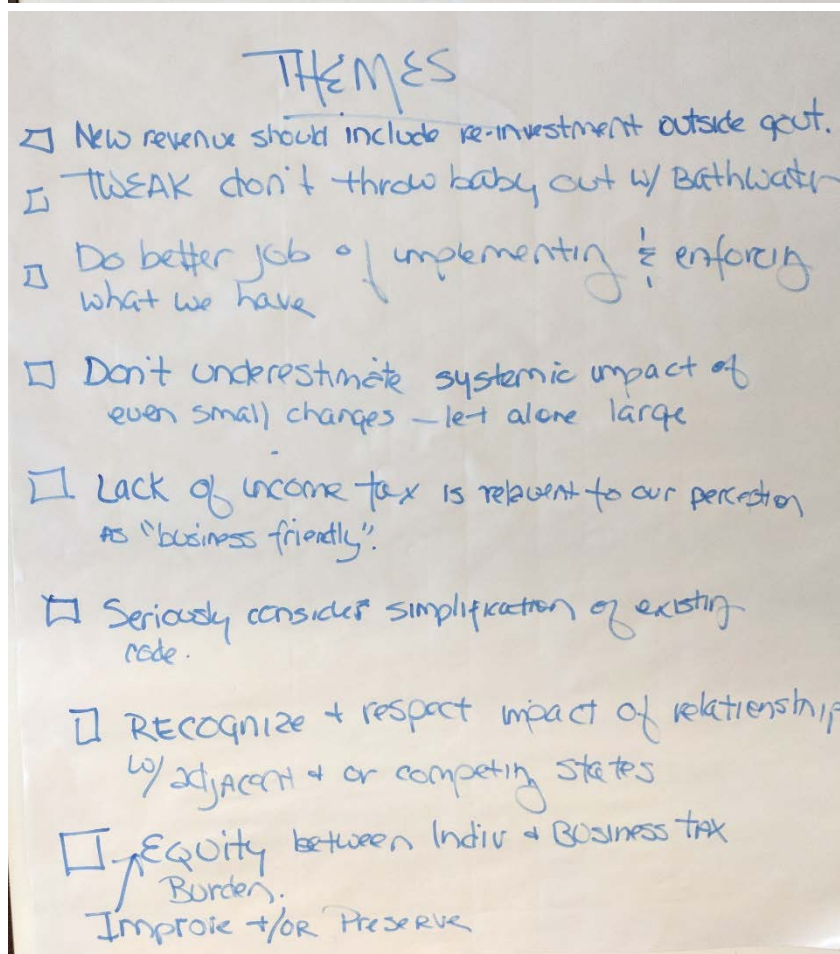 THEMES
□ New revenue should include re-investment outside govt.
□ TWEAK don't throw baby out w/ Bathwater
□ Do better job of implementing & enforcing
what we have
□ Don't underestimate systemic impact of
even small changes - let alone large
□ Lack of income tax is relevent to our perception
AS "business friendly".
□ Seriously consider simplification of existing
code.
□ RECOGNIZE + respect impact of relationship
w/ adjacent + or competing states
□ EQUITY between Indiv + BUSINESS TAX
Burden.
Improve +/OR Preserve